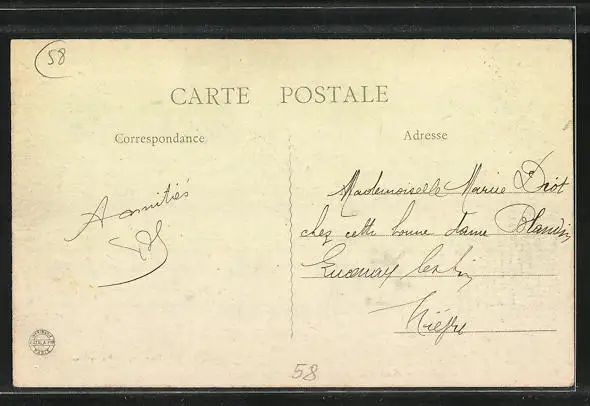 58
CARTE POSTALE
Correspondance
Adresse
Amitiés
Mademoiselle Marie Driot
chez cette bonne dame Blandin
Nièvre
58